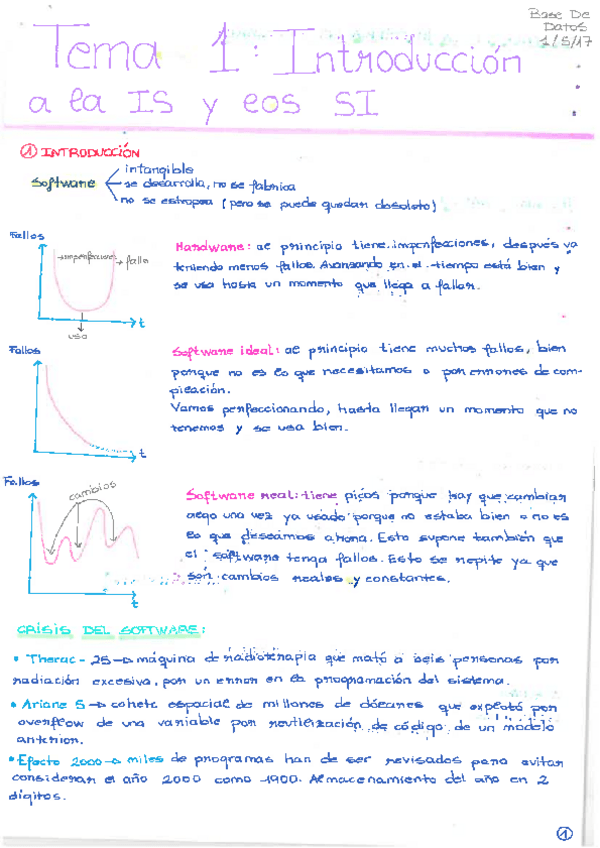 Base De
Datos
1/5/17
Tema 1: Introducción
a la IS y los SI
① INTRODUCCIÓN
Software
intangible
se desarrolla, no se fabrica
no se estropea (pero se puede quedar obsoleto)
Fallos
imperfecciones
fallo
uso
t
Hardware: al principio tiene imperfecciones, después va
teniendo menos fallos. Avanzando en el tiempo está bien y
se usa hasta un momento que llega a fallar.
Fallos
t
Software ideal: al principio tiene muchos fallos, bien
porque no es lo que necesitamos o por errores de com-
pilación.
Vamos perfeccionando, hasta llegar un momento que no
tenemos y se usa bien.
Fallos
cambios
t
Software real: tiene picos porque hay que cambiar
algo una vez ya usado porque no estaba bien o no es
lo que deseamos ahora. Esto supone también que
el software tenga fallos. Esto se repite ya que
son cambios reales y constantes.
CRISIS DEL SOFTWARE:
• Therac-25 → máquina de radioterapia que mató a seis personas por
radiación excesiva, por un error en la programación del sistema.
• Ariane 5 → cohete espacial de millones de dólares que explotó por
overflow de una variable por reutilización de código de un modelo
anterior.
• Efecto 2000 → miles de programas han de ser revisados para evitar
considerar el año 2000 como 1900. Almacenamiento del año en 2
dígitos.
①